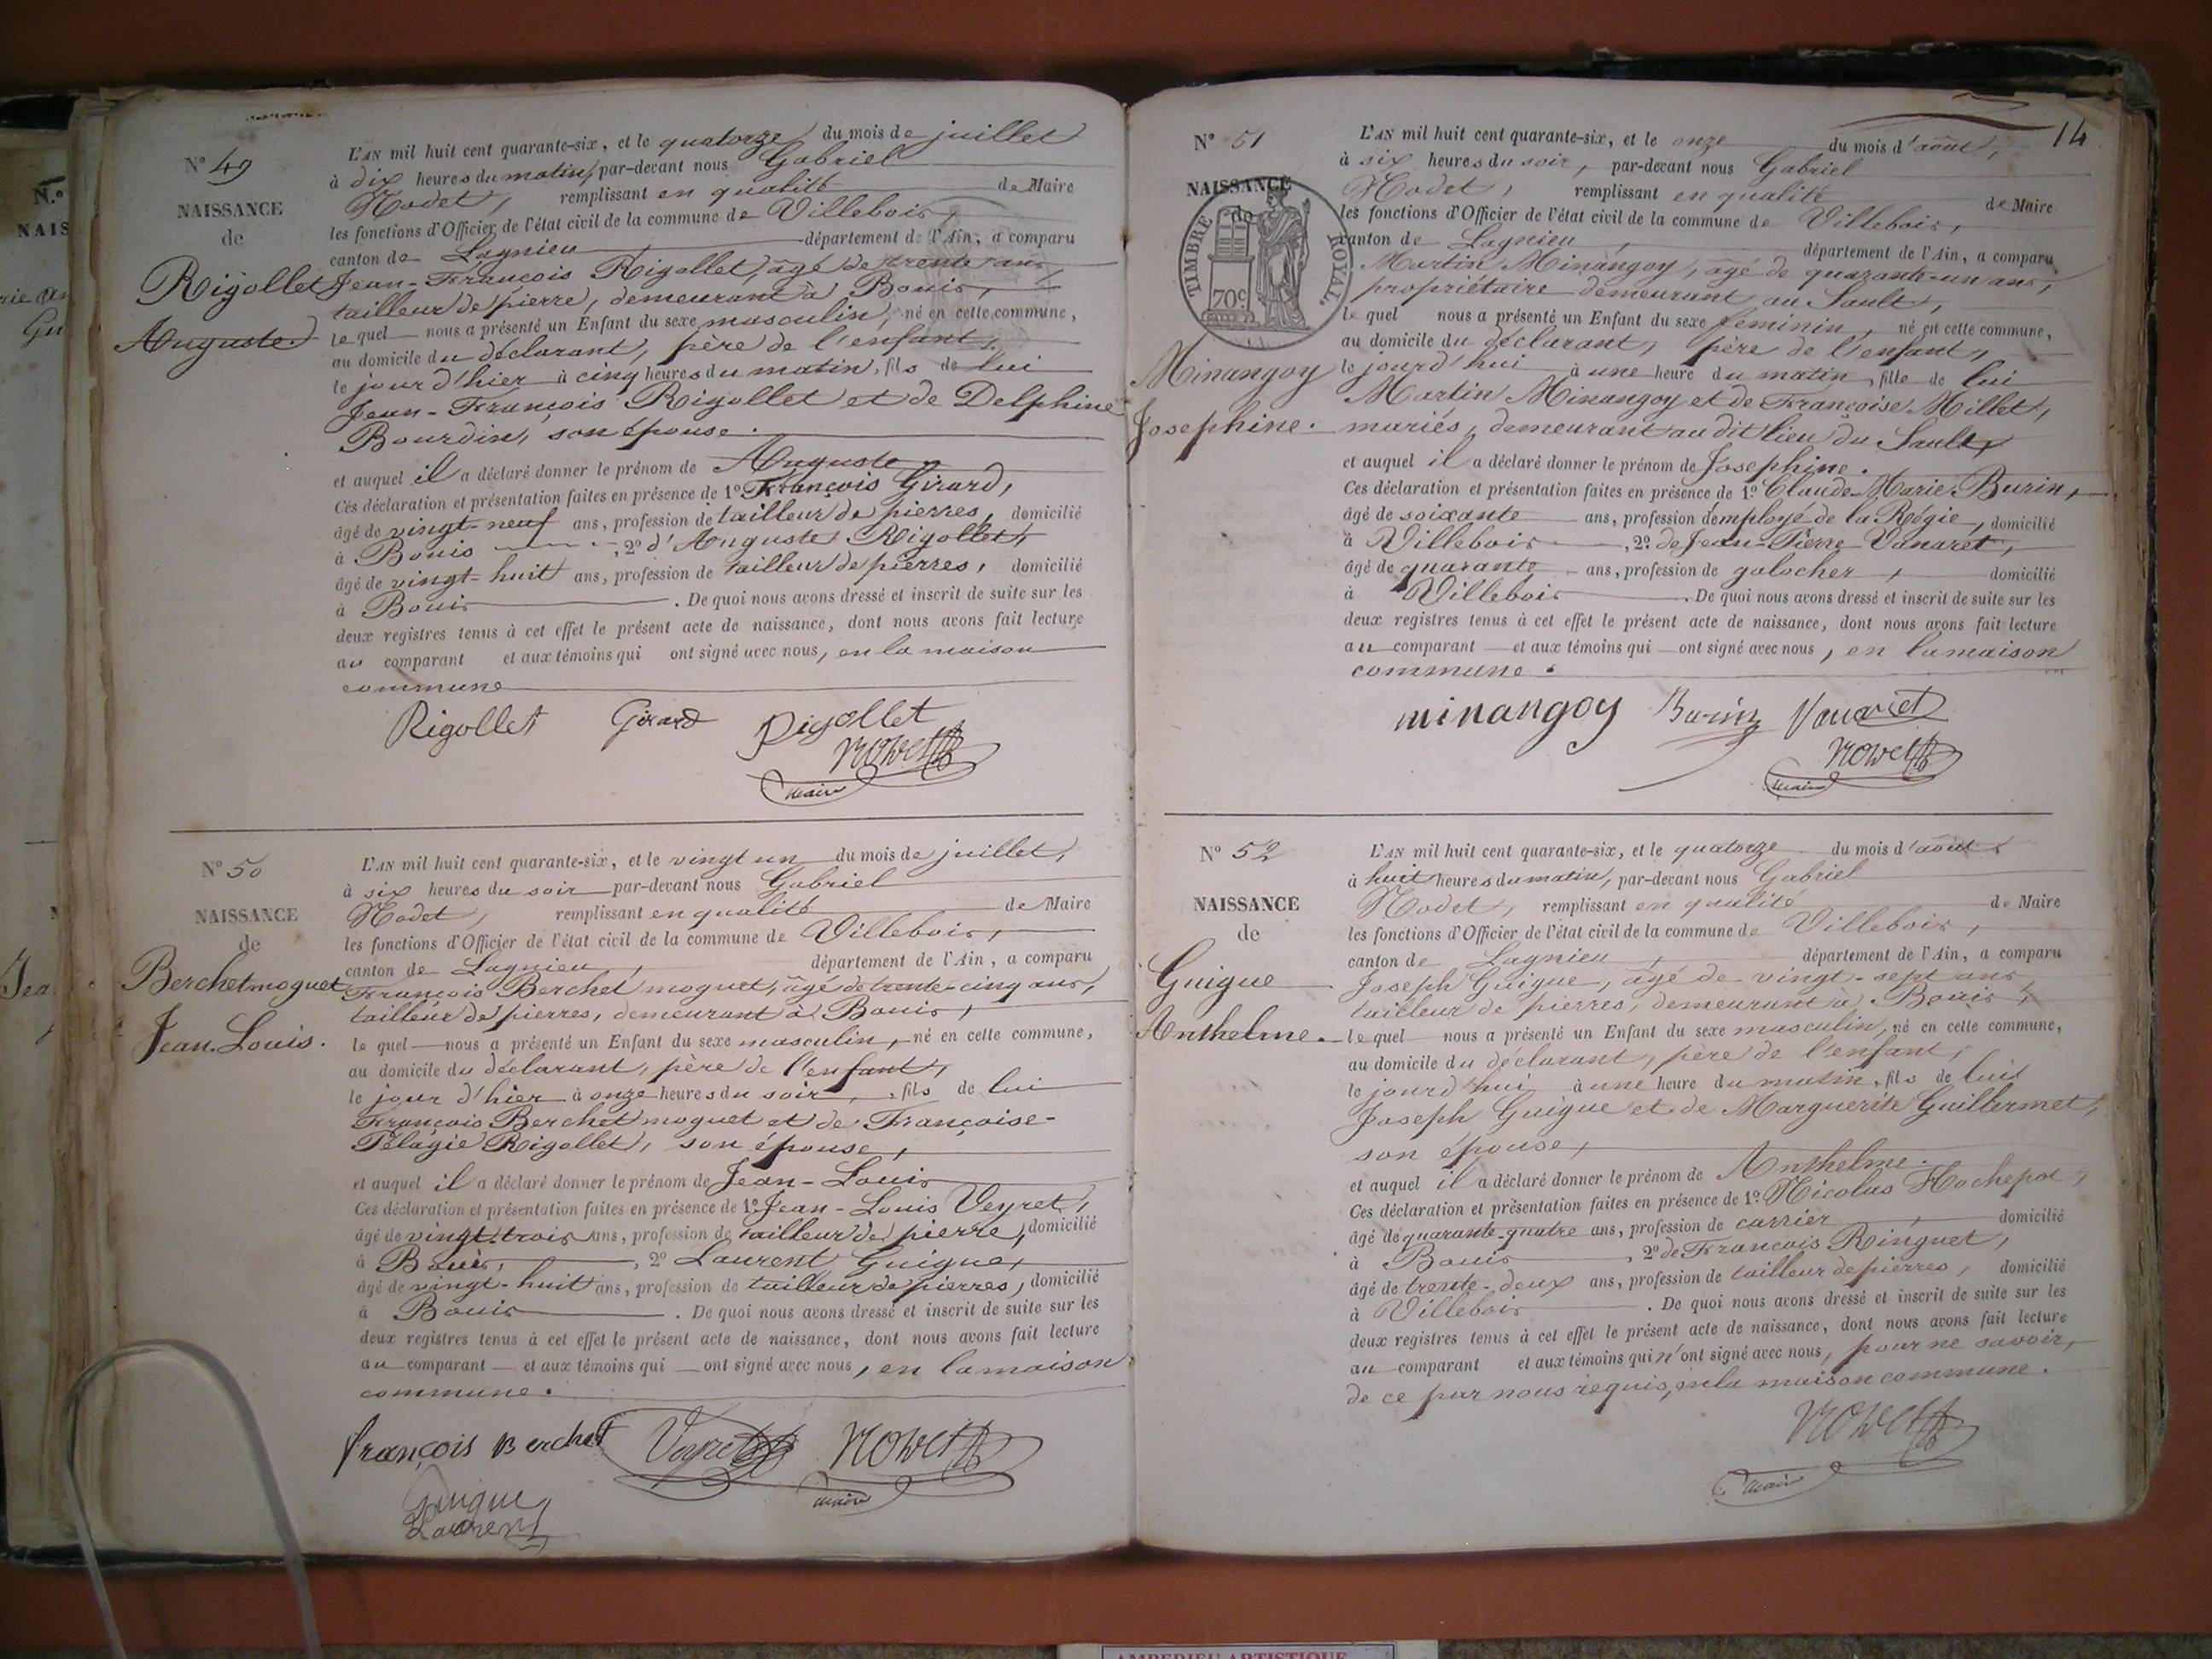 N° 49
NAISSANCE
de
Rigollet
Auguste.
L'AN mil huit cent quarante-six, et le quatorze du mois de juillet
à dix heures du matin, par-devant nous Gabriel
Nodet, remplissant en qualité de Maire
les fonctions d'Officier de l'état civil de la commune de Villebois,
canton de Lagnieu, département de l'Ain, a comparu
Jean-François Rigollet, âgé de trente ans,
tailleur de pierre, demeurant à Bouis,
le quel nous a présenté un Enfant du sexe masculin, né en cette commune,
au domicile du déclarant, père de l'enfant,
le jour d'hier à cinq heures du matin, fils de lui
Jean-François Rigollet et de Delphine
Bourdin, son épouse.
et auquel il a déclaré donner le prénom de Auguste
Ces déclaration et présentation faites en présence de 1° François Girard,
âgé de vingt-neuf ans, profession de tailleur de pierres, domicilié
à Bouis, 2° d'Auguste Rigollet,
âgé de vingt-huit ans, profession de tailleur de pierres, domicilié
à Bouis. De quoi nous avons dressé et inscrit de suite sur les
deux registres tenus à cet effet le présent acte de naissance, dont nous avons fait lecture
au comparant et aux témoins qui ont signé avec nous, en la maison
commune
Rigollet Girard Rigollet
Nodet
maire
N° 50
NAISSANCE
de
Berchetmoguet
Jean-Louis.
L'AN mil huit cent quarante-six, et le vingt un du mois de juillet,
à six heures du soir par-devant nous Gabriel
Nodet, remplissant en qualité de Maire
les fonctions d'Officier de l'état civil de la commune de Villebois,
canton de Lagnieu, département de l'Ain, a comparu
François Berchet moguet, âgé de trente-cinq ans,
tailleur de pierres, demeurant à Bouis,
le quel nous a présenté un Enfant du sexe masculin, né en cette commune,
au domicile du déclarant, père de l'enfant,
le jour d'hier à onze heures du soir, fils de lui
François Berchet moguet et de Françoise-
Pélagie Rigollet, son épouse,
et auquel il a déclaré donner le prénom de Jean-Louis
Ces déclaration et présentation faites en présence de 1° Jean-Louis Veyret,
âgé de vingt-trois ans, profession de tailleur de pierre, domicilié
à Bouis, 2° Laurent Guigue,
âgé de vingt-huit ans, profession de tailleur de pierres, domicilié
à Bouis. De quoi nous avons dressé et inscrit de suite sur les
deux registres tenus à cet effet le présent acte de naissance, dont nous avons fait lecture
au comparant et aux témoins qui ont signé avec nous, en la maison
commune.
françois Berchet Veyret Nodet
maire
Guigue
Laurent
14
N° 51
NAISSANCE
de
TIMBRE ROYAL.
70c
Minangoy
Josephine.
L'AN mil huit cent quarante-six, et le onze du mois d'août,
à six heures du soir, par-devant nous Gabriel
Nodet, remplissant en qualité de Maire
les fonctions d'Officier de l'état civil de la commune de Villebois,
canton de Lagnieu, département de l'Ain, a comparu
Martin Minangoy, âgé de quarante-un ans,
propriétaire demeurant au Sault,
le quel nous a présenté un Enfant du sexe féminin, né en cette commune,
au domicile du déclarant, père de l'enfant,
le jourd'hui à une heure du matin, fille de lui
Martin Minangoy et de Françoise Millet,
mariés, demeurant au dit lieu du Sault,
et auquel il a déclaré donner le prénom de Josephine.
Ces déclaration et présentation faites en présence de 1° Claude-Marie Burin,
âgé de soixante ans, profession d'employé de la Régie, domicilié
à Villebois, 2° de Jean-Pierre Vanaret,
âgé de quarante ans, profession de galocher, domicilié
à Villebois. De quoi nous avons dressé et inscrit de suite sur les
deux registres tenus à cet effet le présent acte de naissance, dont nous avons fait lecture
au comparant et aux témoins qui ont signé avec nous, en la maison
commune.
minangoy Burin Vanaret
Nodet
maire
N° 52
NAISSANCE
de
Guigue
Anthelme.
L'AN mil huit cent quarante-six, et le quatorze du mois d'août,
à huit heures du matin, par-devant nous Gabriel
Nodet, remplissant en qualité de Maire
les fonctions d'Officier de l'état civil de la commune de Villebois,
canton de Lagnieu, département de l'Ain, a comparu
Joseph Guigue, âgé de vingt-sept ans,
tailleur de pierres, demeurant à Bouis,
le quel nous a présenté un Enfant du sexe masculin, né en cette commune,
au domicile du déclarant, père de l'enfant,
le jourd'hui à une heure du matin, fils de lui
Joseph Guigue et de Marguerite Guillermet,
son épouse,
et auquel il a déclaré donner le prénom de Anthelme.
Ces déclaration et présentation faites en présence de 1° Nicolas Hochepot,
âgé de quarante-quatre ans, profession de carrier, domicilié
à Bouis, 2° de François Ringuet,
âgé de trente-deux ans, profession de tailleur de pierres, domicilié
à Villebois. De quoi nous avons dressé et inscrit de suite sur les
deux registres tenus à cet effet le présent acte de naissance, dont nous avons fait lecture
au comparant et aux témoins qui n'ont signé avec nous, pour ne savoir,
de ce par nous requis, en la maison commune.
Nodet
maire
AMBERIEU ARTISTIQUE